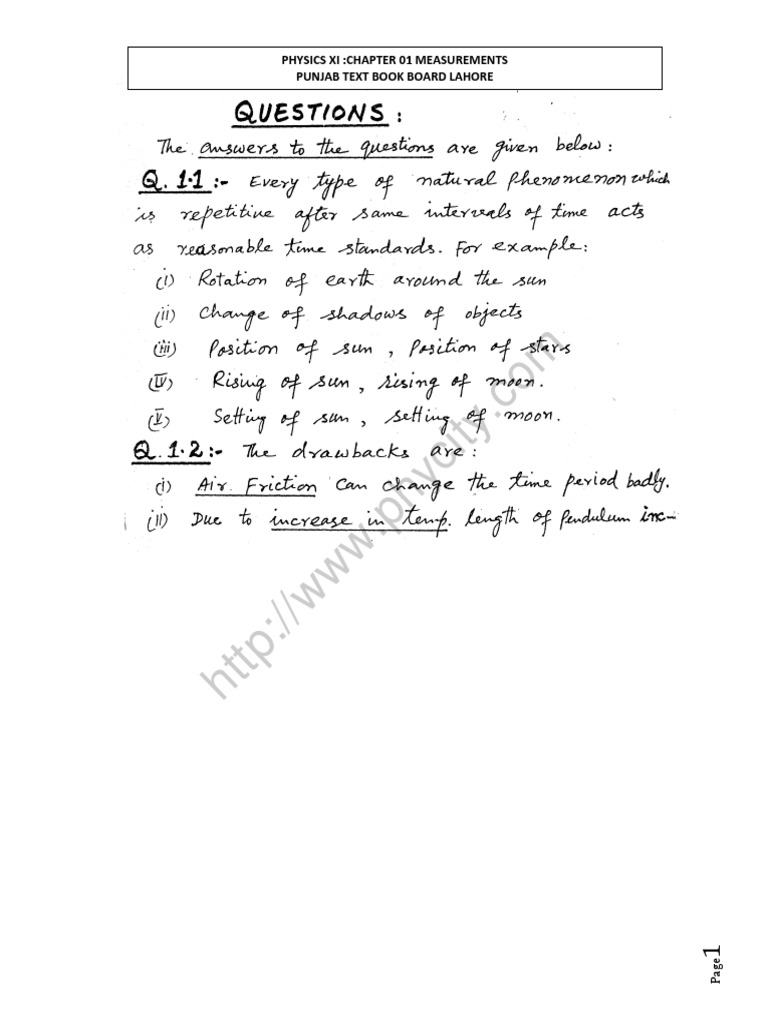 PHYSICS XI :CHAPTER 01 MEASUREMENTS
PUNJAB TEXT BOOK BOARD LAHORE
QUESTIONS :
The answers to the questions are given below :
Q. 1.1 :- Every type of natural phenomenon which
is repetitive after same intervals of time acts
as reasonable time standards. For example:
(i) Rotation of earth around the sun
(ii) Change of shadows of objects
(iii) Position of sun , Position of stars
(IV) Rising of sun , rising of moon.
(V) Setting of sun , setting of moon.
Q. 1.2 :- The drawbacks are :
(i) Air Friction can change the time period badly.
(II) Due to increase in temp. length of Pendulum inc-
http://www.phycity.com
Page1